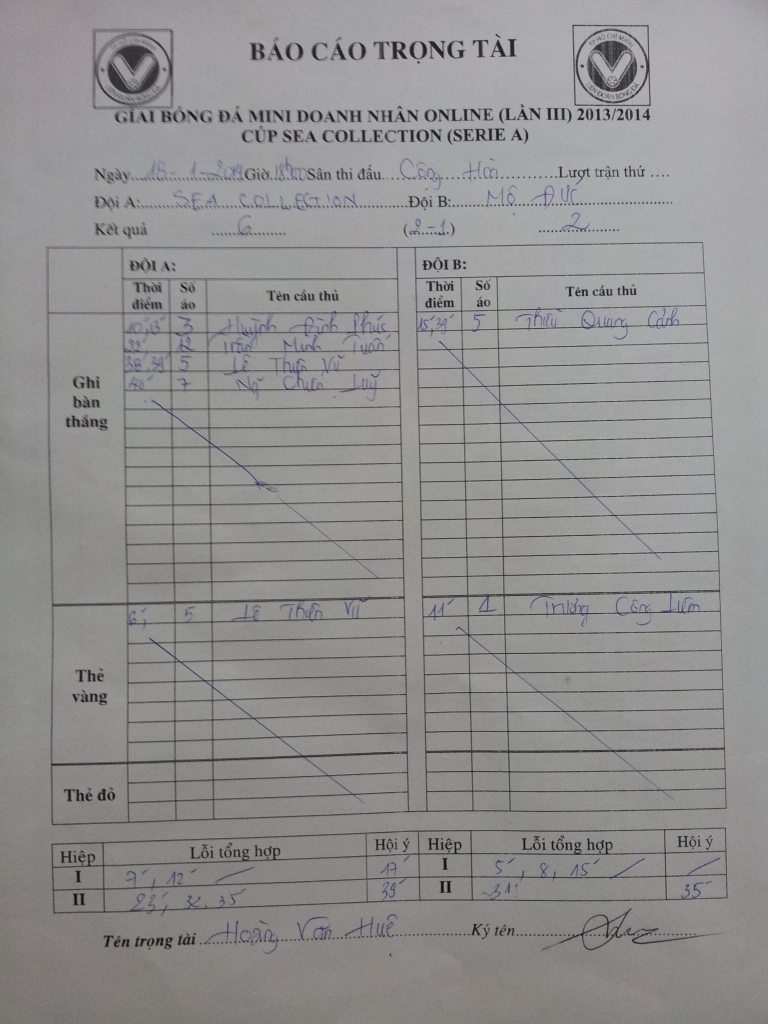 BÁO CÁO TRỌNG TÀI
GIẢI BÓNG ĐÁ MINI DOANH NHÂN ONLINE (LẦN III) 2013/2014
CÚP SEA COLLECTION (SERIE A)
Ngày 18-1-2014 Giờ 18h00 Sân thi đấu Cộng Hòa Lượt trận thứ ....
Đội A: SEA COLLECTION Đội B: MỘ ĐỨC
Kết quả 6 (2-1) 2
ĐỘI A: ĐỘI B:
Thời điểm Số áo Tên cầu thủ Thời điểm Số áo Tên cầu thủ
Ghi bàn thắng
3 Huỳnh Đình Phúc 15', 39' 5 Thiều Quang Cảnh
12 Trần Minh Tuấn
38', 39' 5 Lê Thiện Vũ
40' 7 Ngô Chiến Luỹ
Thẻ vàng
5 Lê Thiện Vũ 11' 1 Trương Công Liêm
Thẻ đỏ
Hiệp Lỗi tổng hợp Hội ý Hiệp Lỗi tổng hợp Hội ý
I 7', 12' 17' I 5', 8, 15'
II 23', 32, 35' 39' II 31' 35'
Tên trọng tài Hoàng Văn Huê Ký tên